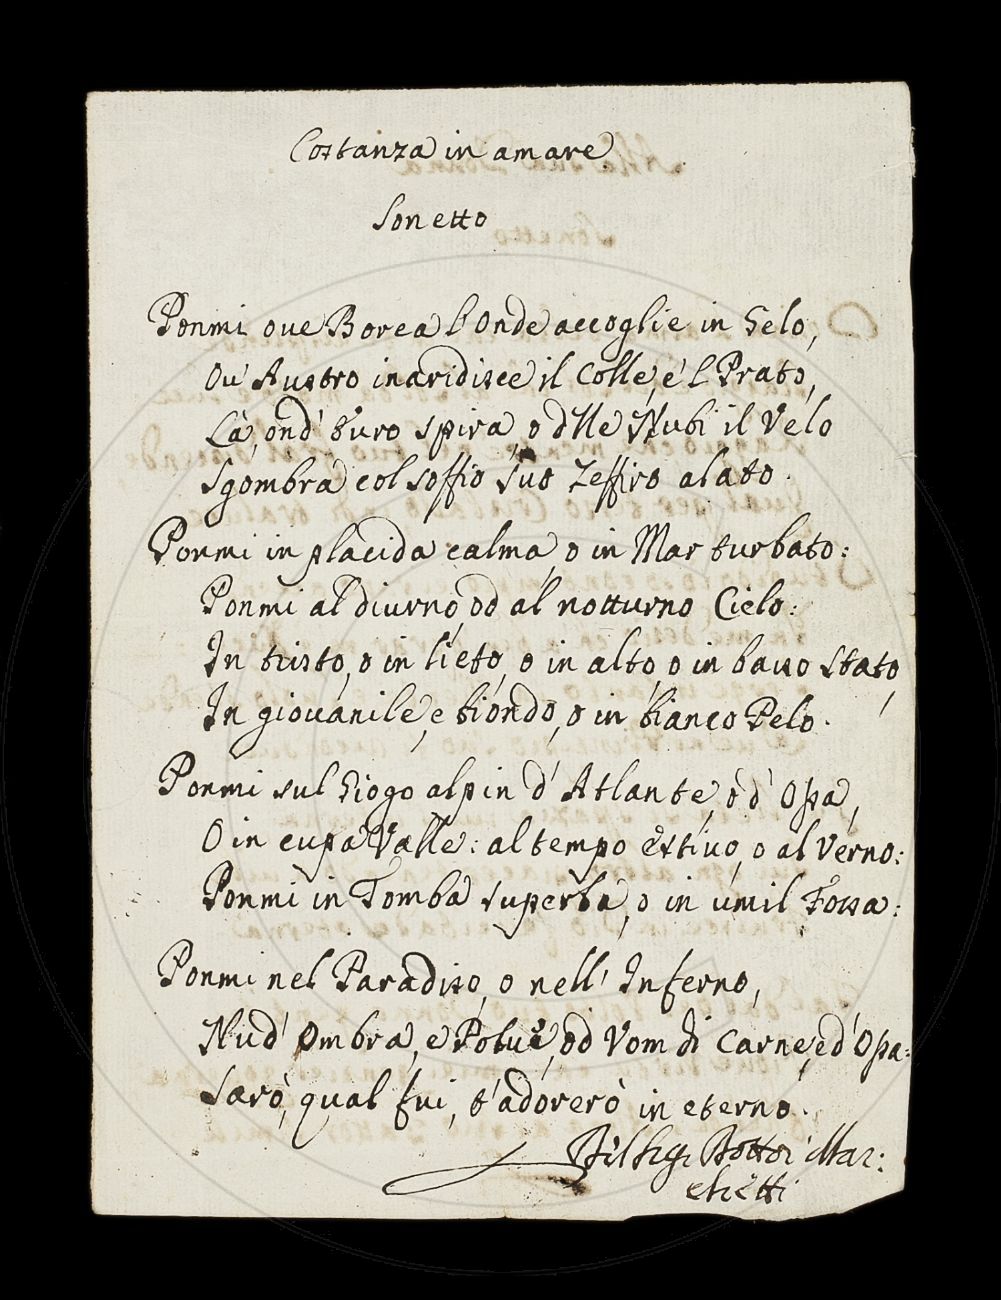 Costanza in amare
Sonetto
Ponmi oue Borea l'Onde accoglie in Gelo,
Ou' Austro inaridisce il Colle, e'l Prato,
Là, ond' Euro spira, o delle Nubi il Velo
Sgombra col soffio suo Zeffiro alato.
Ponmi in placida calma, o in Mar turbato:
Ponmi al diurno, od al notturno Cielo:
In tristo, o in lieto, o in alto, o in basso Stato,
In giouanile, e biondo, o in bianco Pelo.
Ponmi sul Giogo alpin d' Atlante, o d' Ossa,
O in cupa Valle: al tempo estiuo, o al Verno:
Ponmi in Tomba superba, o in umil Fossa:
Ponmi nel Paradiso, o nell' Inferno,
Nud' Ombra, e Polue, od Vom di Carne, ed' Ossa:
Sarò, qual fui, t'adorerò in eterno.
Del Sig. Dottor Mar:
chetti